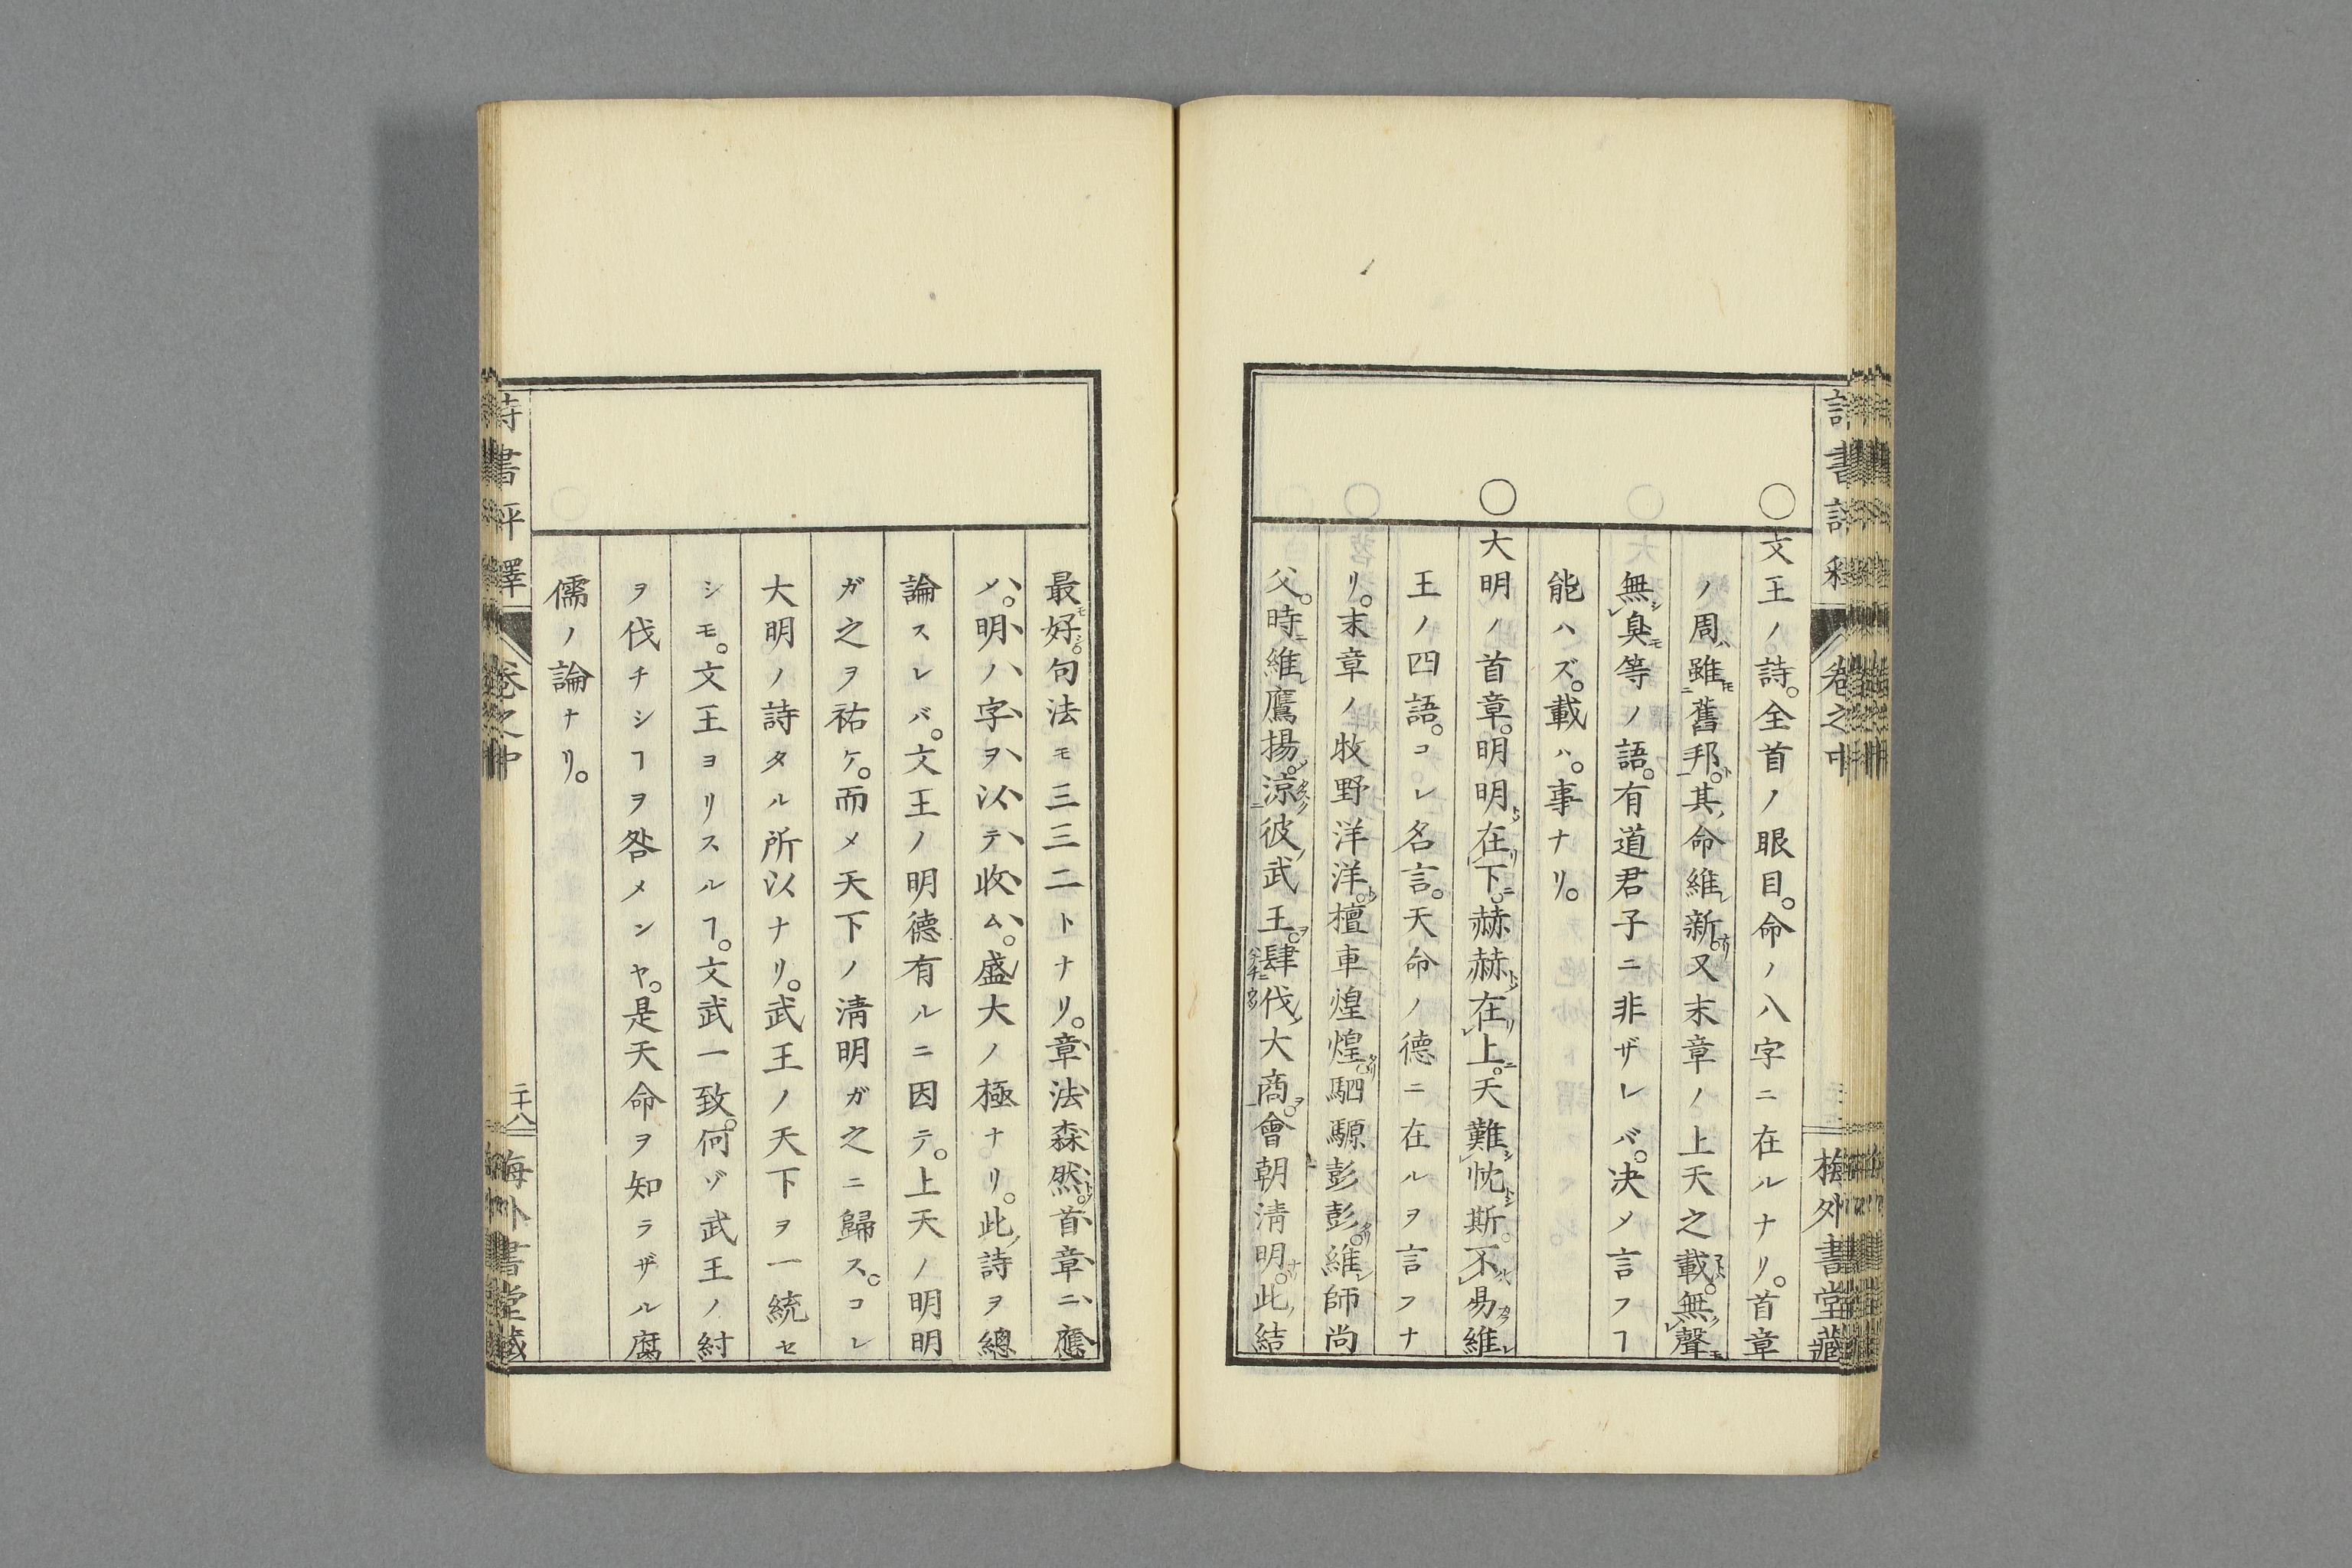 ○文王ノ詩。全首ノ眼目。命ノ八字ニ在ルナリ。首章
ノ周雖舊邦。其命維新。又末章ノ上天之載。無聲
無臭等ノ語。有道君子ニ非ザレバ。决メ言フヿ
能ハズ。載ハ。事ナリ。
○大明ノ首章。明明在下。赫赫在上。天難忱斯。不易維
王ノ四語。コレ名言。天命ノ德ニ在ルヲ言フナ
リ。末章ノ牧野洋洋。檀車煌煌。駟騵彭彭。維師尚
父。時維鷹揚。涼彼武王。肆伐大商。會朝淸明。此結
最好。句法モ三三二トナリ。章法森然。首章ニ應
メ。明ノ字ヲ以テ收ム。盛大ノ極ナリ。此詩ヲ總
論スレバ。文王ノ明德有ルニ因テ。上天ノ明明
ガ之ヲ祐ケ。而メ天下ノ淸明ガ之ニ歸ス。コレ
大明ノ詩タル所以ナリ。武王ノ天下ヲ一統セ
シモ。文王ヨリスルヿ。文武一致。何ゾ武王ノ紂
ヲ伐チシヿヲ咎メンヤ。是天命ヲ知ラザル腐
儒ノ論ナリ。
詩書評釋
卷之中
二十八
海外書堂藏